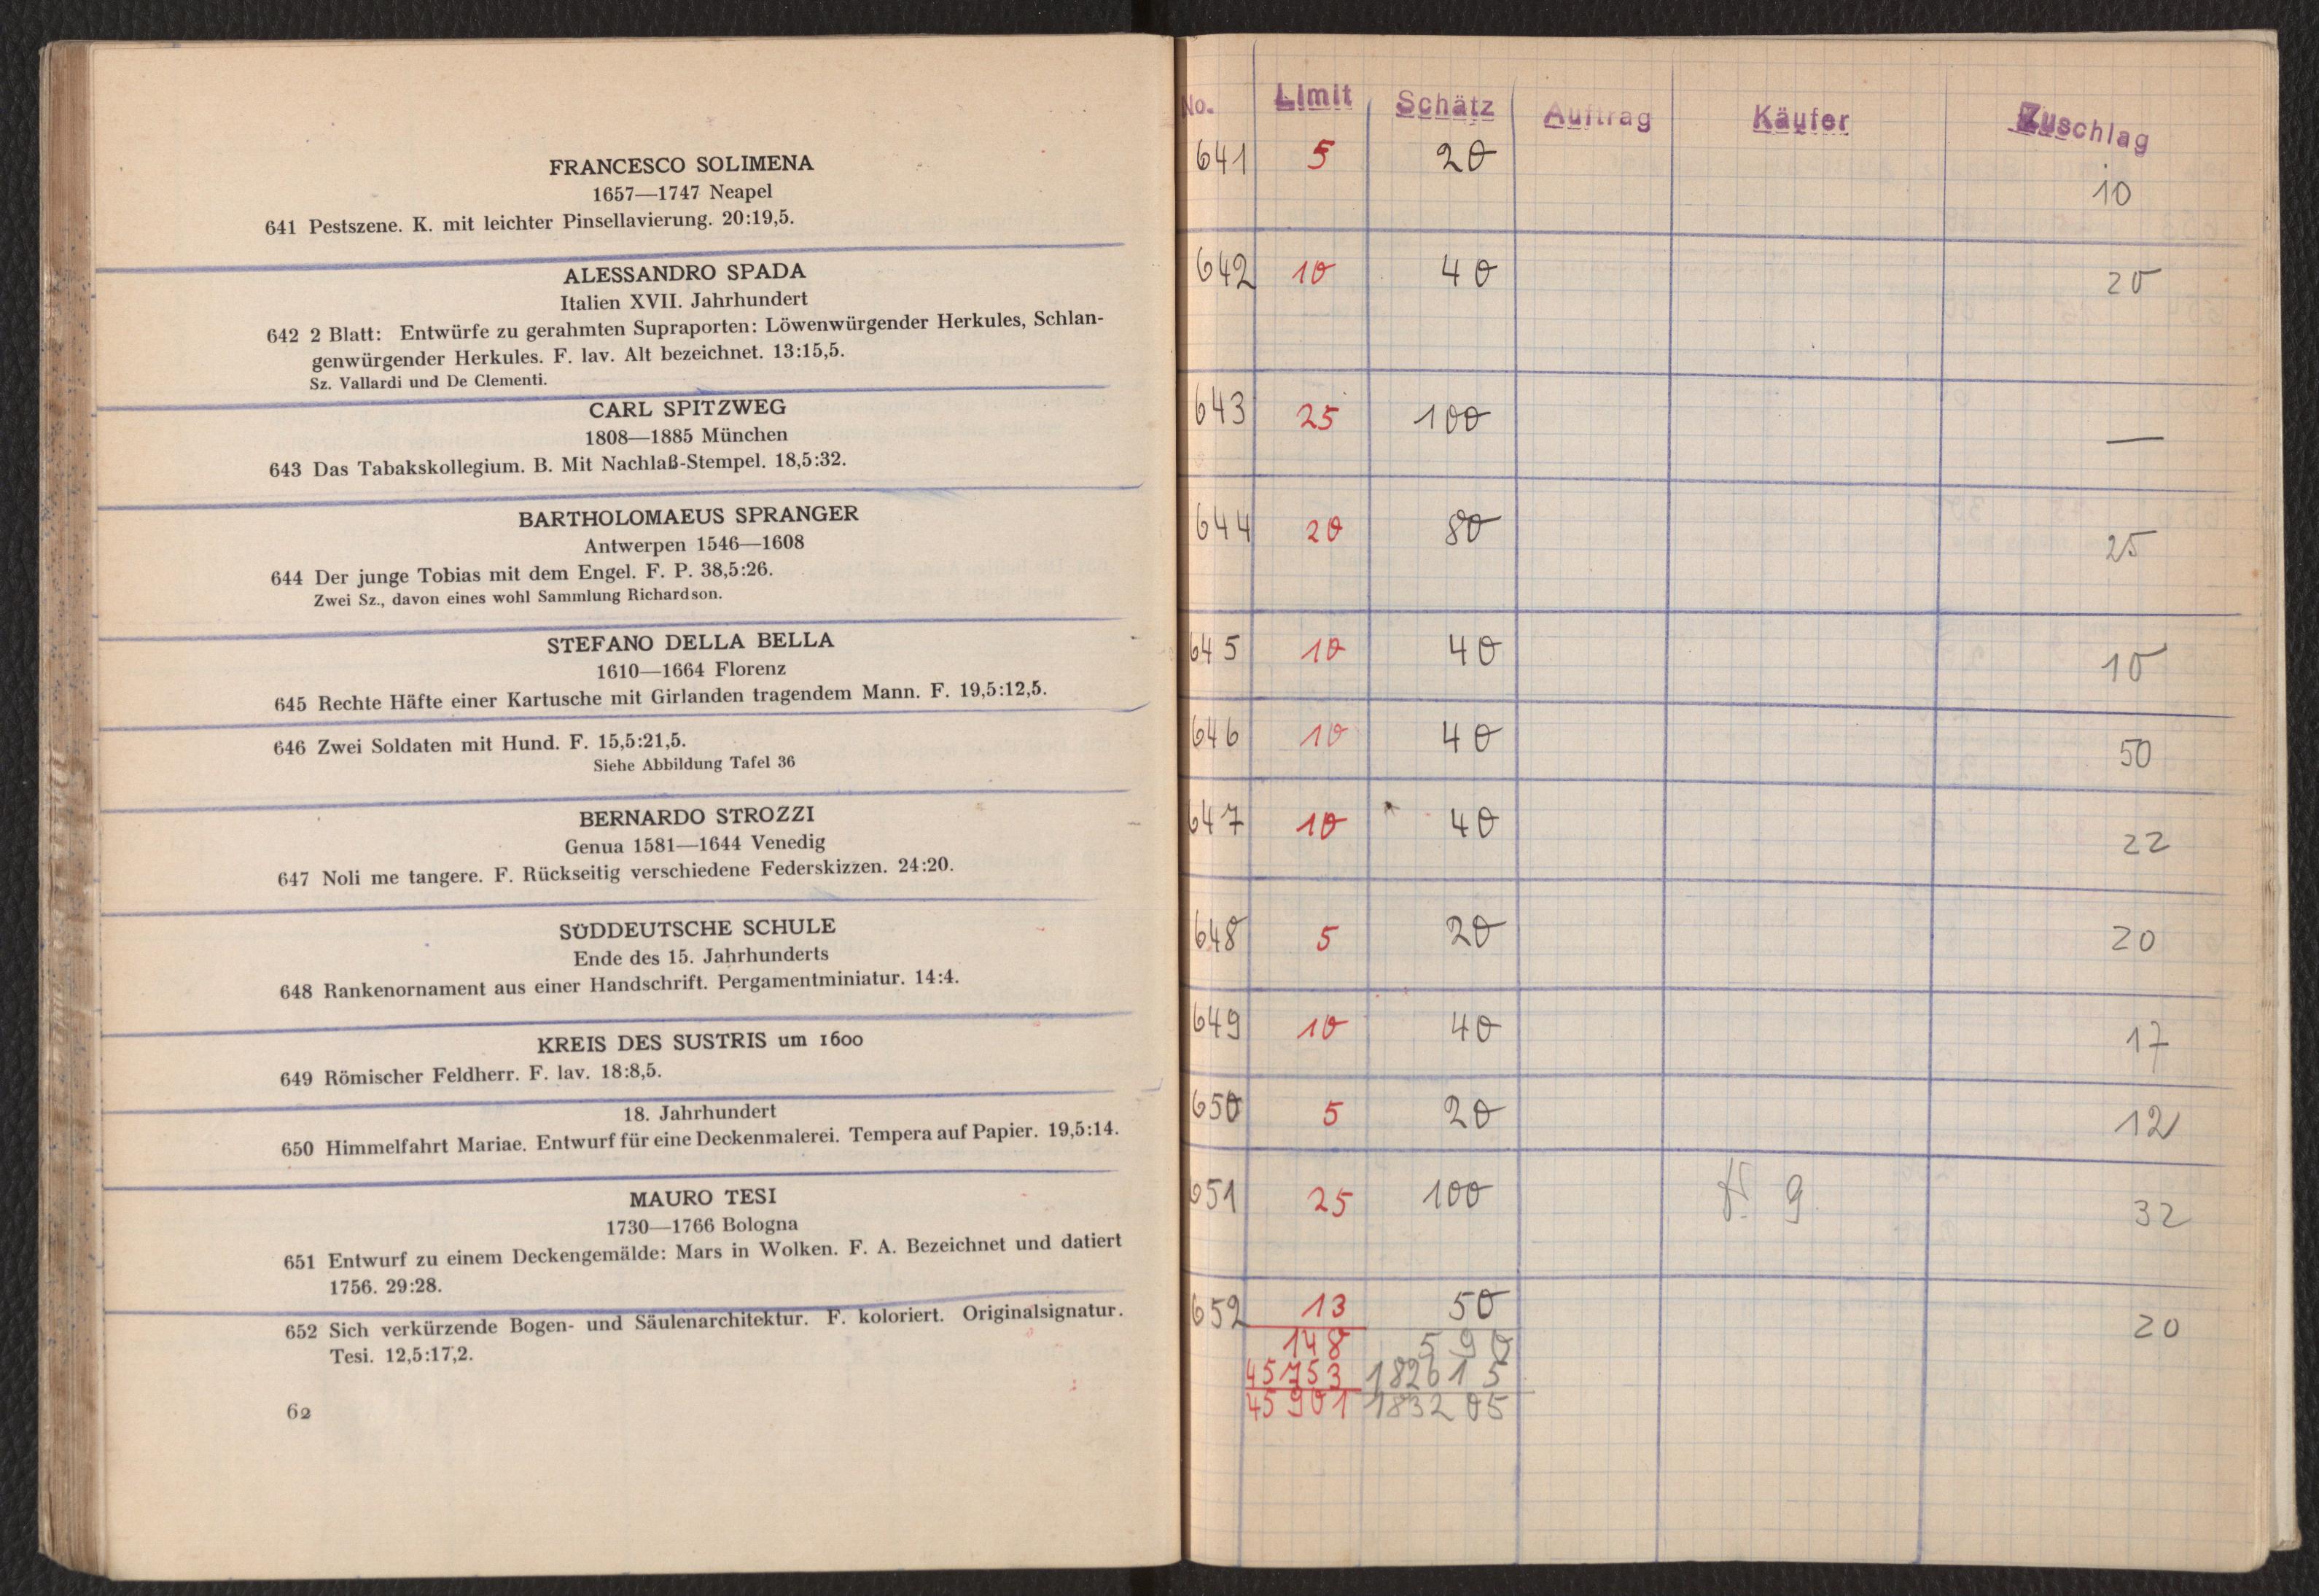 FRANCESCO SOLIMENA
1657—1747 Neapel
641 Pestszene. K. mit leichter Pinsellavierung. 20:19,5.
ALESSANDRO SPADA
Italien XVII. Jahrhundert
642 2 Blatt: Entwürfe zu gerahmten Supraporten: Löwenwürgender Herkules, Schlan-
genwürgender Herkules. F. lav. Alt bezeichnet. 13:15,5.
Sz. Vallardi und De Clementi.
CARL SPITZWEG
1808—1885 München
643 Das Tabakskollegium. B. Mit Nachlaß-Stempel. 18,5:32.
BARTHOLOMAEUS SPRANGER
Antwerpen 1546—1608
644 Der junge Tobias mit dem Engel. F. P. 38,5:26.
Zwei Sz., davon eines wohl Sammlung Richardson.
STEFANO DELLA BELLA
1610—1664 Florenz
645 Rechte Häfte einer Kartusche mit Girlanden tragendem Mann. F. 19,5:12,5.
646 Zwei Soldaten mit Hund. F. 15,5:21,5.
Siehe Abbildung Tafel 36
BERNARDO STROZZI
Genua 1581—1644 Venedig
647 Noli me tangere. F. Rückseitig verschiedene Federskizzen. 24:20.
SÜDDEUTSCHE SCHULE
Ende des 15. Jahrhunderts
648 Rankenornament aus einer Handschrift. Pergamentminiatur. 14:4.
KREIS DES SUSTRIS um 1600
649 Römischer Feldherr. F. lav. 18:8,5.
18. Jahrhundert
650 Himmelfahrt Mariae. Entwurf für eine Deckenmalerei. Tempera auf Papier. 19,5:14.
MAURO TESI
1730—1766 Bologna
651 Entwurf zu einem Deckengemälde: Mars in Wolken. F. A. Bezeichnet und datiert
1756. 29:28.
652 Sich verkürzende Bogen- und Säulenarchitektur. F. koloriert. Originalsignatur.
Tesi. 12,5:17,2.
62
No. Limit Schätz Auftrag Käufer Zuschlag
641 5 20 10
642 10 40 20
643 25 100 —
644 20 80 25
645 10 40 10
646 10 40 50
647 10 40 22
648 5 20 20
649 10 40 17
650 5 20 12
651 25 100 9 32
652 13 50 20
148 590
45753 182615
45901 183205